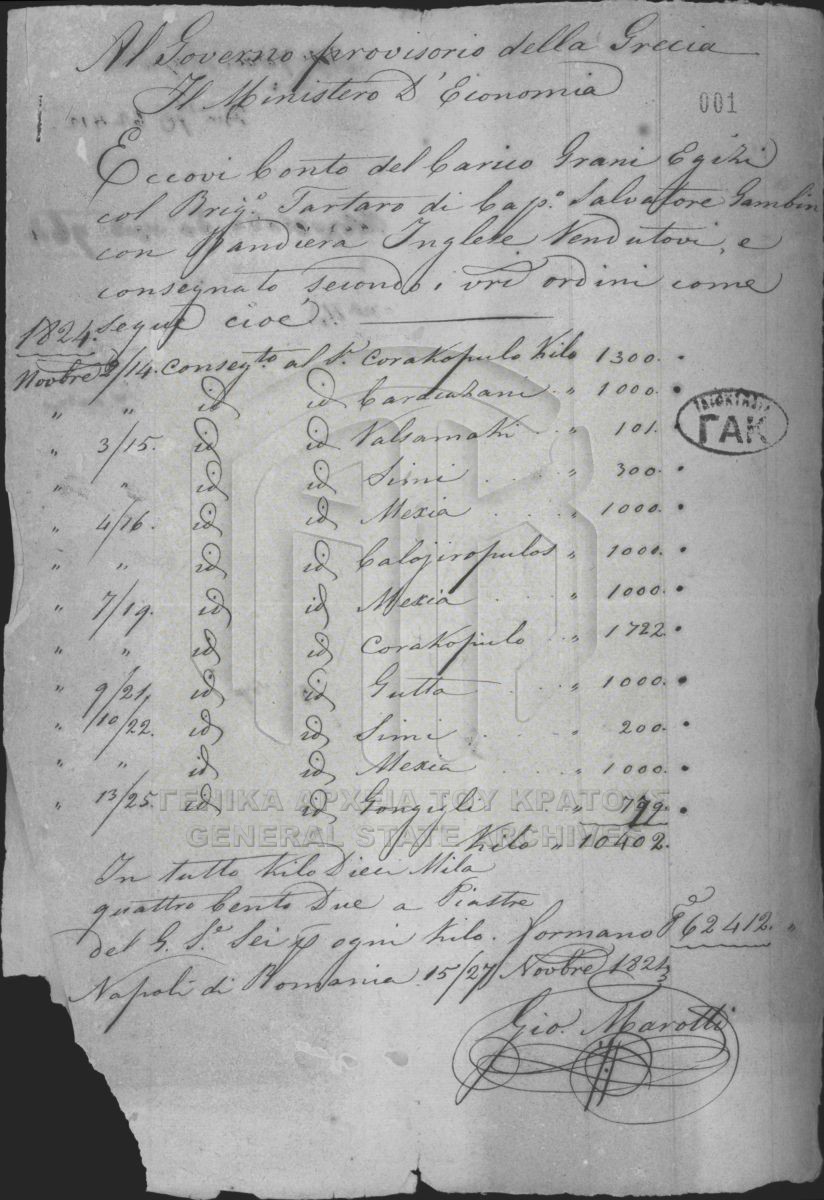 Al Governo provisorio della Grecia
Il Ministero D'Economia
001
Eccovi Conto del Carico Grani Egizi
col Brigo. Tartaro di Capo. Salvatore Gambin
con Bandiera Inglese Vendutovi, e
consegnato secondo i vri ordini come
segue cioè
1824.
Novbre 2/14. consegto. al Sr. Corakopulo Kilo 1300.
" " id id Caracuzani " 1000.
" 3/15. id id Valsamaki " 101.
" " id id Simi " 300.
" 4/16. id id Mexia " 1000.
" " id id Calojiropulos " 1000.
" 7/19. id id Mexia " 1000.
" " id id Corakopulo " 1722.
" 9/21, id id Gutta " 1000.
" 10/22. id id Simi " 200.
" " id id Mexia " 1000.
" 13/25. id id Gongili " 779.
Kilo " 10402.
In tutto Kilo Dieci Mila
quattro Cento Due a Piastre
del G. Se. Sei p ogni Kilo. formano P 62412. "
Napoli di Romania 15/27 Novbre 1824
Gio. Marotti
ΙΔΙΟΚΤΗΣΙΑ
ΓΑΚ
ΓΕΝΙΚΑ ΑΡΧΕΙΑ ΤΟΥ ΚΡΑΤΟΥΣ
GENERAL STATE ARCHIVES